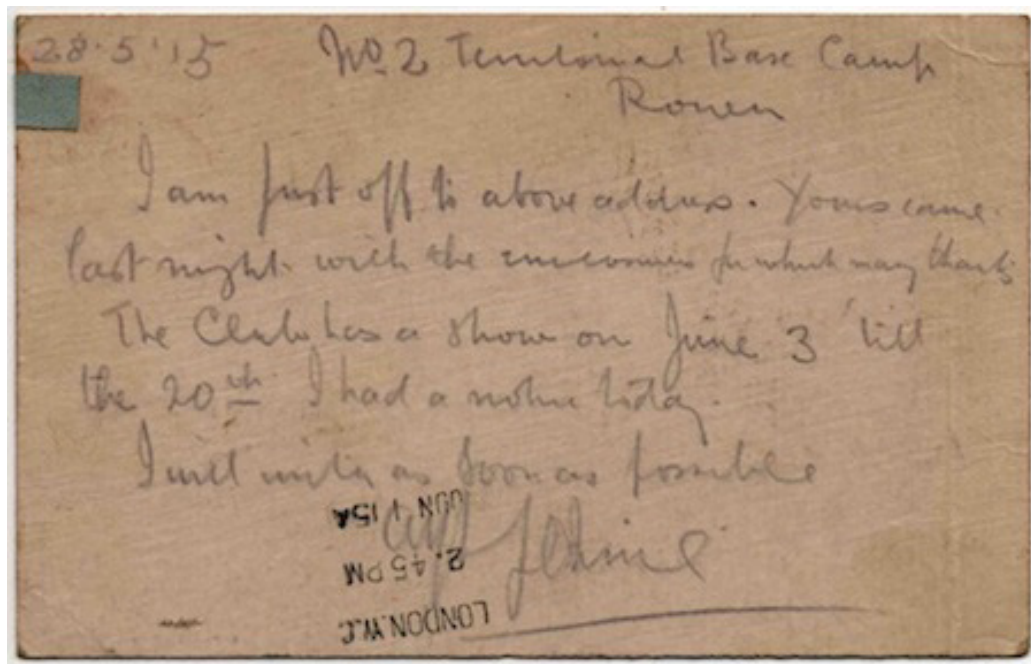 28·5·15 No. 2 Territorial Base Camp
Rouen
I am just off to above address. Yours came
last night with the enclosures for which many thanks
The Club has a show on June 3 till
the 20th I had a notice today.
I will write as soon as possible
JUN 1 15A
2.45 PM
LONDON.W.C.